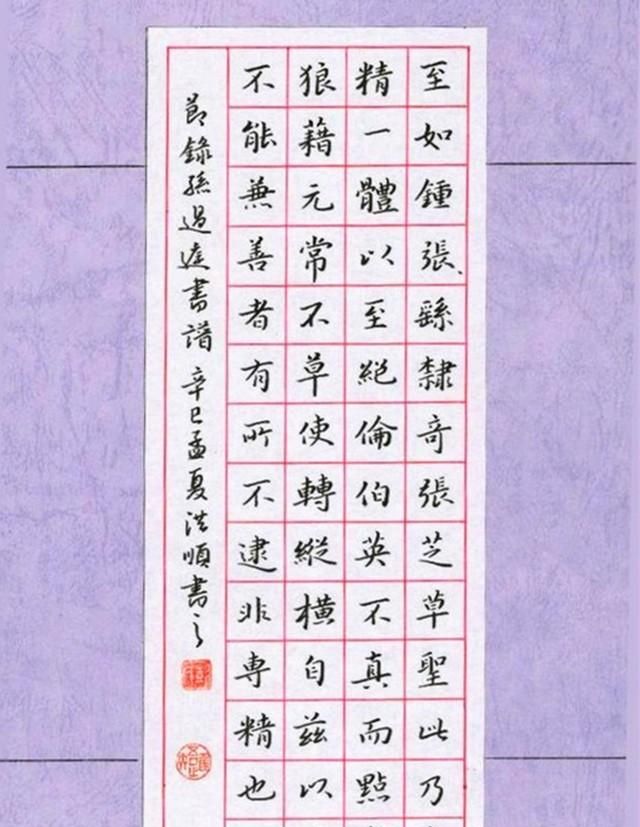 至如鍾張、繇隸奇張芝草聖此乃
精一體以至絕倫伯英不真而點
狼藉元常不草使轉縱橫自茲以
不能兼善者有所不逮非專精也
節錄孫過庭書譜 辛巳孟夏洪順書之